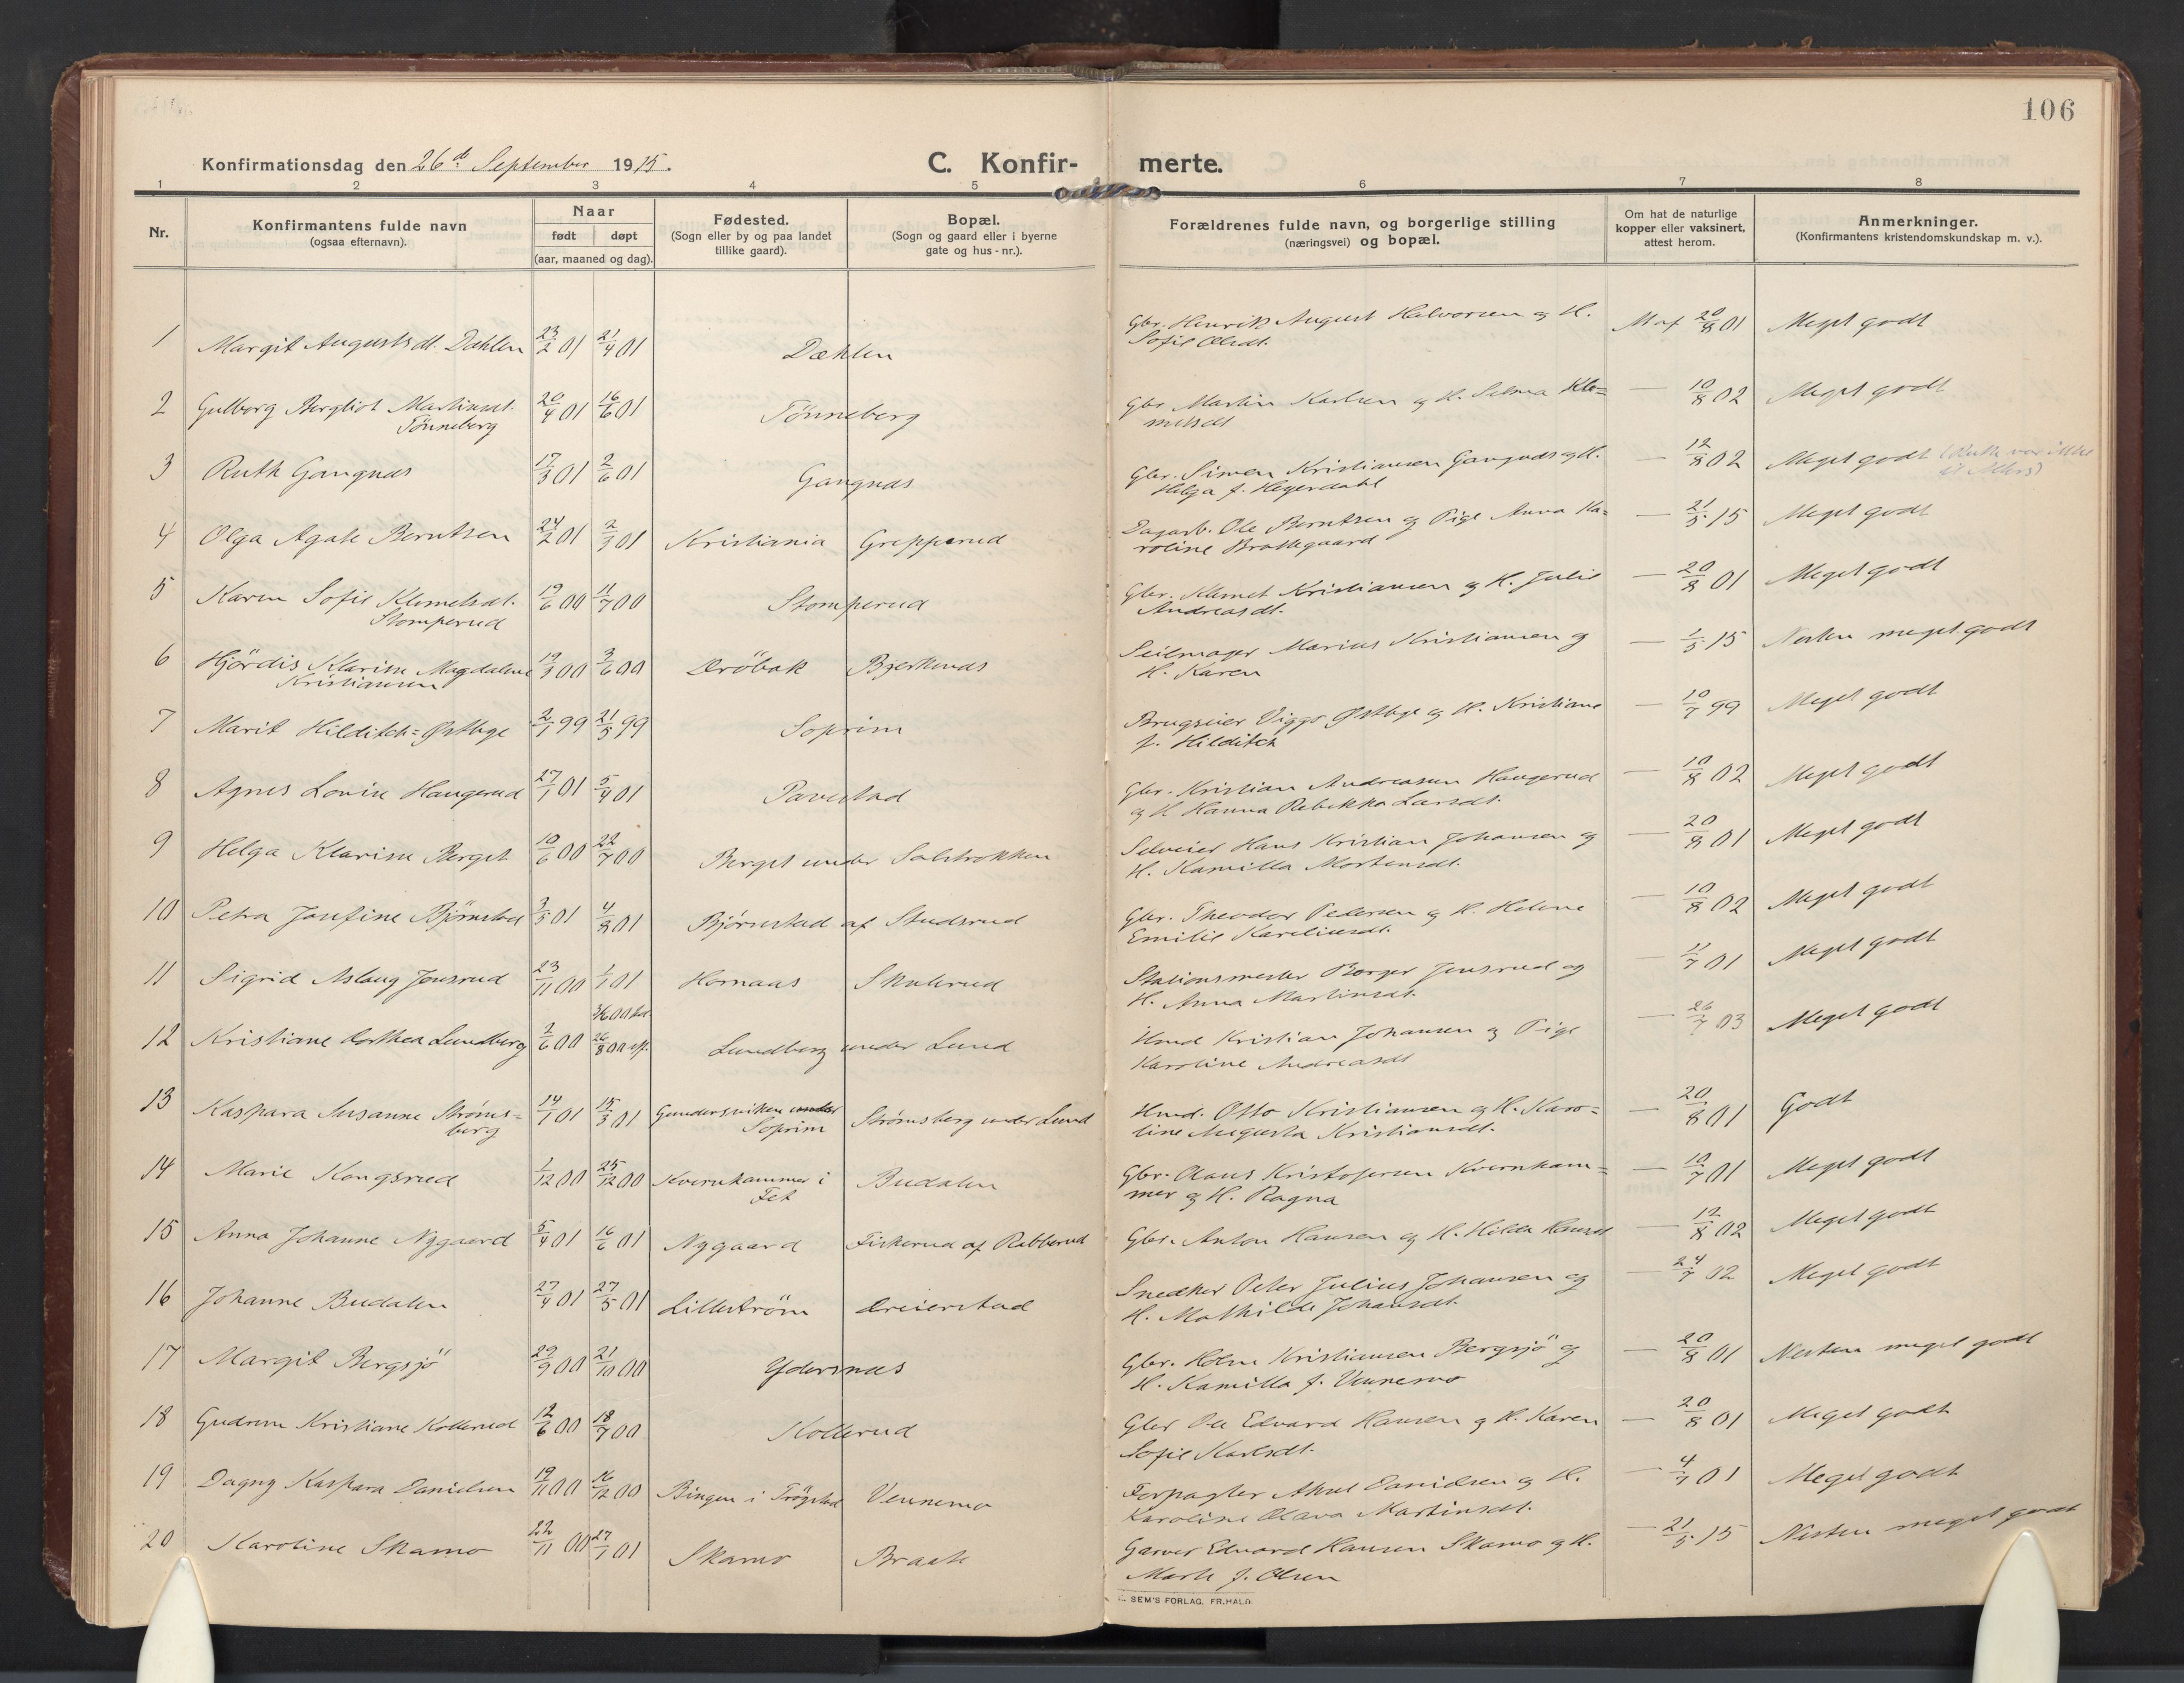 106
Konfirmationsdag den 26de September 1915.
C. Konfir- merte.
1 2 3 4 5 6 7 8
Nr.
Konfirmantens fulde navn
(ogsaa efternavn).
Naar
født døpt
(aar, maaned og dag).
Fødested.
(Sogn eller by og paa landet
tillike gaard).
Bopæl.
(Sogn og gaard eller i byerne
gate og hus-nr.).
Forældrenes fulde navn, og borgerlige stilling
(næringsvei) og bopæl.
Om hat de naturlige
kopper eller vaksinert,
attest herom.
Anmerkninger.
(Konfirmantens kristendomskundskap m. v.).
1 Margit Augustsdt. Dæhlen 23/2 01 21/4 01 Dæhlen Gbr. Henrik August Halvorsen og H. 20/8 01 Meget godt
Sofie Olsdt.
2 Gulborg Bergliot Martinsdt. 20/4 01 16/6 01 Tönneberg Gbr. Martin Karlsen og H. Selma Kle= — 10/8 02 Meget godt
Tönneberg metsdt
3 Ruth Gangnæs 17/3 01 2/6 01 Gangnæs Gbr. Simen Kristiansen Gangnæs og H. — 12/8 02 Meget godt (Ruth var ikke
Helga f. Heyerdahl til Alters)
4 Olga Agate Berntsen 24/2 01 2/3 01 Kristiania Grepperud Dagarb. Ole Berntsen og Pige Anna Ka= — 21/5 15 Meget godt
roline Brattegaard
5 Karen Sofie Klemetsdt. 19/6 00 11/7 00 Stomperud Gbr. Klemet Kristiansen og H. Julie — 20/8 01 Meget godt
Stomperud Andreasdt.
6 Hjördis Klarise Magdalene 19/3 00 3/6 00 Dröbak Bjerkenæs Seilmager Marius Kristiansen og — 1/5 15 Nesten meget godt
Kristiansen H. Karen
7 Marit Hilditch=Østbye 2/1 99 21/5 99 Soprim Brugseier Viggo Østbye og H. Kristiane — 10/7 99 Meget godt
f. Hilditch
8 Agnes Lovise Haugerud 27/1 01 5/4 01 Tavestad Gbr. Kristian Andreassen Haugerud — 10/8 02 Meget godt
og H Hanna Rebekka Larsdt.
9 Helga Klarise Berget 10/6 00 22/7 00 Berget under Solstrøkken Selveier Hans Kristian Johansen og — 20/8 01 Meget godt
H. Kamilla Mortensdt.
10 Petra Josefine Bjørnstad 3/5 01 4/8 01 Bjørnstad af Studsrud Gbr. Theodor Pedersen og H. Helene — 10/8 02 Meget godt
Emilie Karelinsdt.
11 Sigrid Aslaug Jensrud 23/11 00 1/1 01 Hornaas Skulerud Stationsmester Borger Jensrud og — 11/7 01 Meget godt
H. Anna Martinsdt.
12 Kristiane Dorthea Lundberg 2/6 00 26/8 00 Lundberg under Lund Hmd Kristian Johansen og Pige — 26/7 03 Meget godt
Karoline Andreasdt
13 Kaspara Susanne Strøms= 14/1 01 15/3 01 Gundersviken under Strømsberg under Lund Hmd. Otto Kristiansen og H. Karo= — 20/8 01 Godt
berg Soprim line Augusta Kristiansdt.
14 Marie Kongsrud 1/12 00 25/12 00 Kvernhammer i Budalen Gbr. Olaus Kristofersen Kvernham= — 10/7 01 Meget godt
Fet mer og H. Ragna
15 Anna Johanne Nygaard 5/4 01 16/6 01 Nygaard Fiskerud af Rabberud Gbr. Anton Hansen og H. Hilda Hansdt — 12/8 02 Meget godt
16 Johanne Budalen 27/4 01 27/5 01 Lilleström Dreierstad Snedker Peter Julius Johansen og — 24/7 02 Meget godt
H. Mathilde Johansdt.
17 Margit Bergsjö 29/9 00 21/10 00 Ydersnæs Gbr. Holm Kristiansen Bergsjö og — 20/8 01 Nesten meget godt
H. Kamilla f. Vennemo
18 Gudrun Kristiane Kollerud 12/6 00 18/7 00 Kollerud Gbr Ole Edvard Hansen og H. Karen — 20/8 01 Meget godt
Sofie Karlsdt.
19 Dagny Kaspara Danielsen 19/11 00 16/12 00 Bingen i Trøgstad Vennemo Forpagter Aksel Danielsen og H. — 4/7 01 Meget godt
Karoline Olava Martinsdt.
20 Karoline Skamo 22/11 00 27/1 01 Skamo Braate Garver Edvard Hansen Skamo og H. — 21/5 15 Nesten meget godt
Marte f. Olsen
SEM'S FORLAG, FR.HALD.